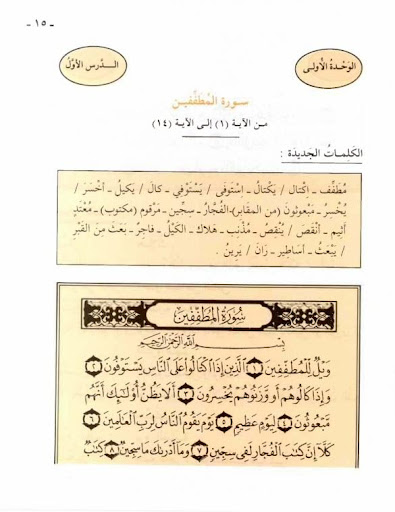 - ١٥ -
الوَحْدَةُ الأُولى
الدَّرس الأوَّلُ
سورة المُطفِّفين
من الآية (١) إلى الآية (١٤)
الكَلِمـاتُ الجَديدَة :
مُطَفِّف - اِكْتال / يَكْتالُ - اِسْتَوفى / يَسْتَوْفي - كالَ / يَكيلُ - أخْسَرَ /
يُخْسِرُ - مَبْعوثونَ (من المقابر) - الفُجَّارُ - سِجِّين - مَرْقوم (مكتوب) - مُعْتَدٍ
أثيم - أنْقَصَ / يُنْقِصُ - مُذْنِب - هَلاك - الكَيْل - فاجِرٌ - بَعَثَ مِنَ القَبْرِ
/ يَبْعَثُ - أساطير - رَانَ / يَرينُ .
سُورَةُ المُطَفِّفِينَ
بِسْمِ اللَّهِ الرَّحْمَٰنِ الرَّحِيمِ
وَيْلٌ لِّلْمُطَفِّفِينَ ١ الَّذِينَ إِذَا اكْتَالُوا عَلَى النَّاسِ يَسْتَوْفُونَ ٢
وَإِذَا كَالُوهُمْ أَو وَّزَنُوهُمْ يُخْسِرُونَ ٣ أَلَا يَظُنُّ أُولَٰئِكَ أَنَّهُم
مَّبْعُوثُونَ ٤ لِيَوْمٍ عَظِيمٍ ٥ يَوْمَ يَقُومُ النَّاسُ لِرَبِّ الْعَالَمِينَ ٦
كَلَّا إِنَّ كِتَابَ الْفُجَّارِ لَفِي سِجِّينٍ ٧ وَمَا أَدْرَاكَ مَا سِجِّينٌ ٨ كِتَابٌ